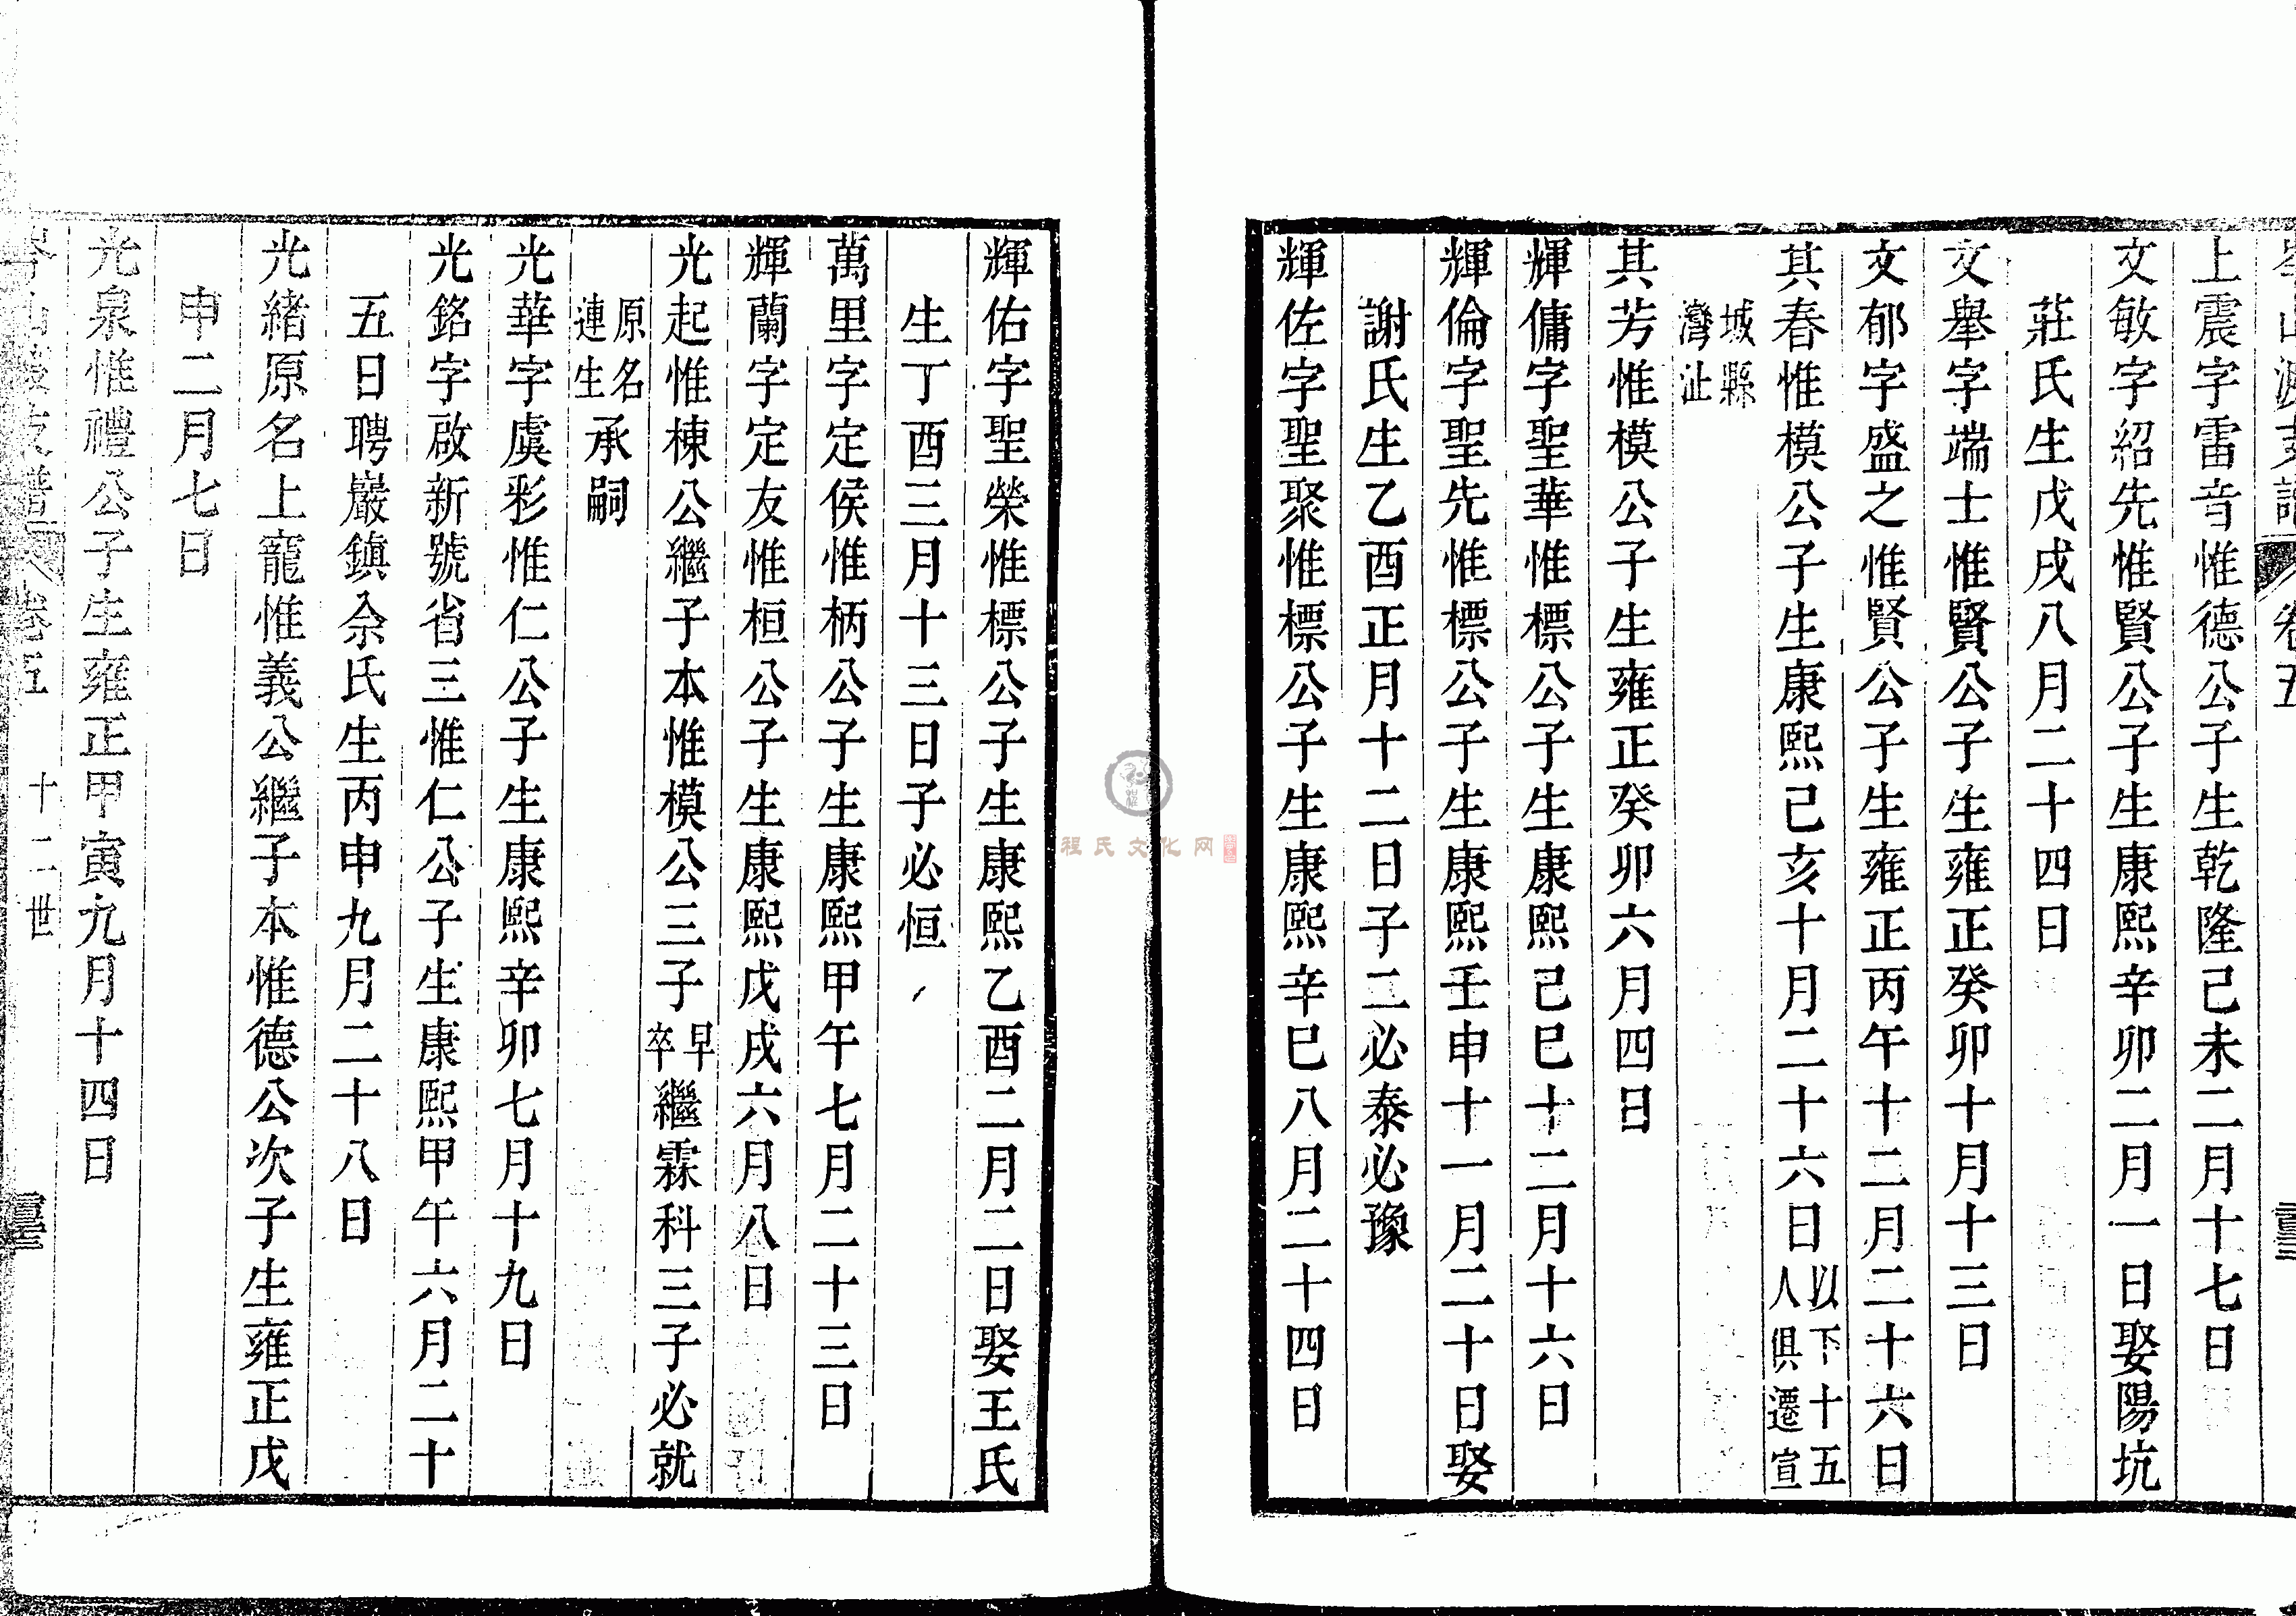 卷五
上震字雷音惟德公子生乾隆己未二月十七日
文敏字紹先惟賢公子生康熙辛卯二月一日娶陽坑
莊氏生戊戌八月二十四日
文舉字端士惟賢公子生雍正癸卯十月十三日
文郁字盛之惟賢公子生雍正丙午十二月二十六日
其春惟模公子生康熙己亥十月二十六日以下十五人俱遷宣
城縣灣沚
其芳惟模公子生雍正癸卯六月四日
輝傭字聖華惟標公子生康熙己巳十二月十六日
輝倫字聖先惟標公子生康熙壬申十一月二十日娶
謝氏生乙酉正月十二日子二必泰必豫
輝佐字聖聚惟標公子生康熙辛巳八月二十四日
輝佑字聖榮惟標公子生康熙乙酉二月二日娶王氏
生丁酉三月十三日子必恒
萬里字定侯惟柄公子生康熙甲午七月二十三日
輝蘭字定友惟桓公子生康熙戊戌六月八日
光起惟棟公繼子本惟模公三子早卒繼霖科三子必就
原名連生承嗣
光華字虞彩惟仁公子生康熙辛卯七月十九日
光銘字啟新號省三惟仁公子生康熙甲午六月二十
五日聘巖鎮余氏生丙申九月二十八日
光緒原名上寵惟義公繼子本惟德公次子生雍正戊
申二月七日
光泉惟禮公子生雍正甲寅九月十四日
卷五 十二世
程氏文化网